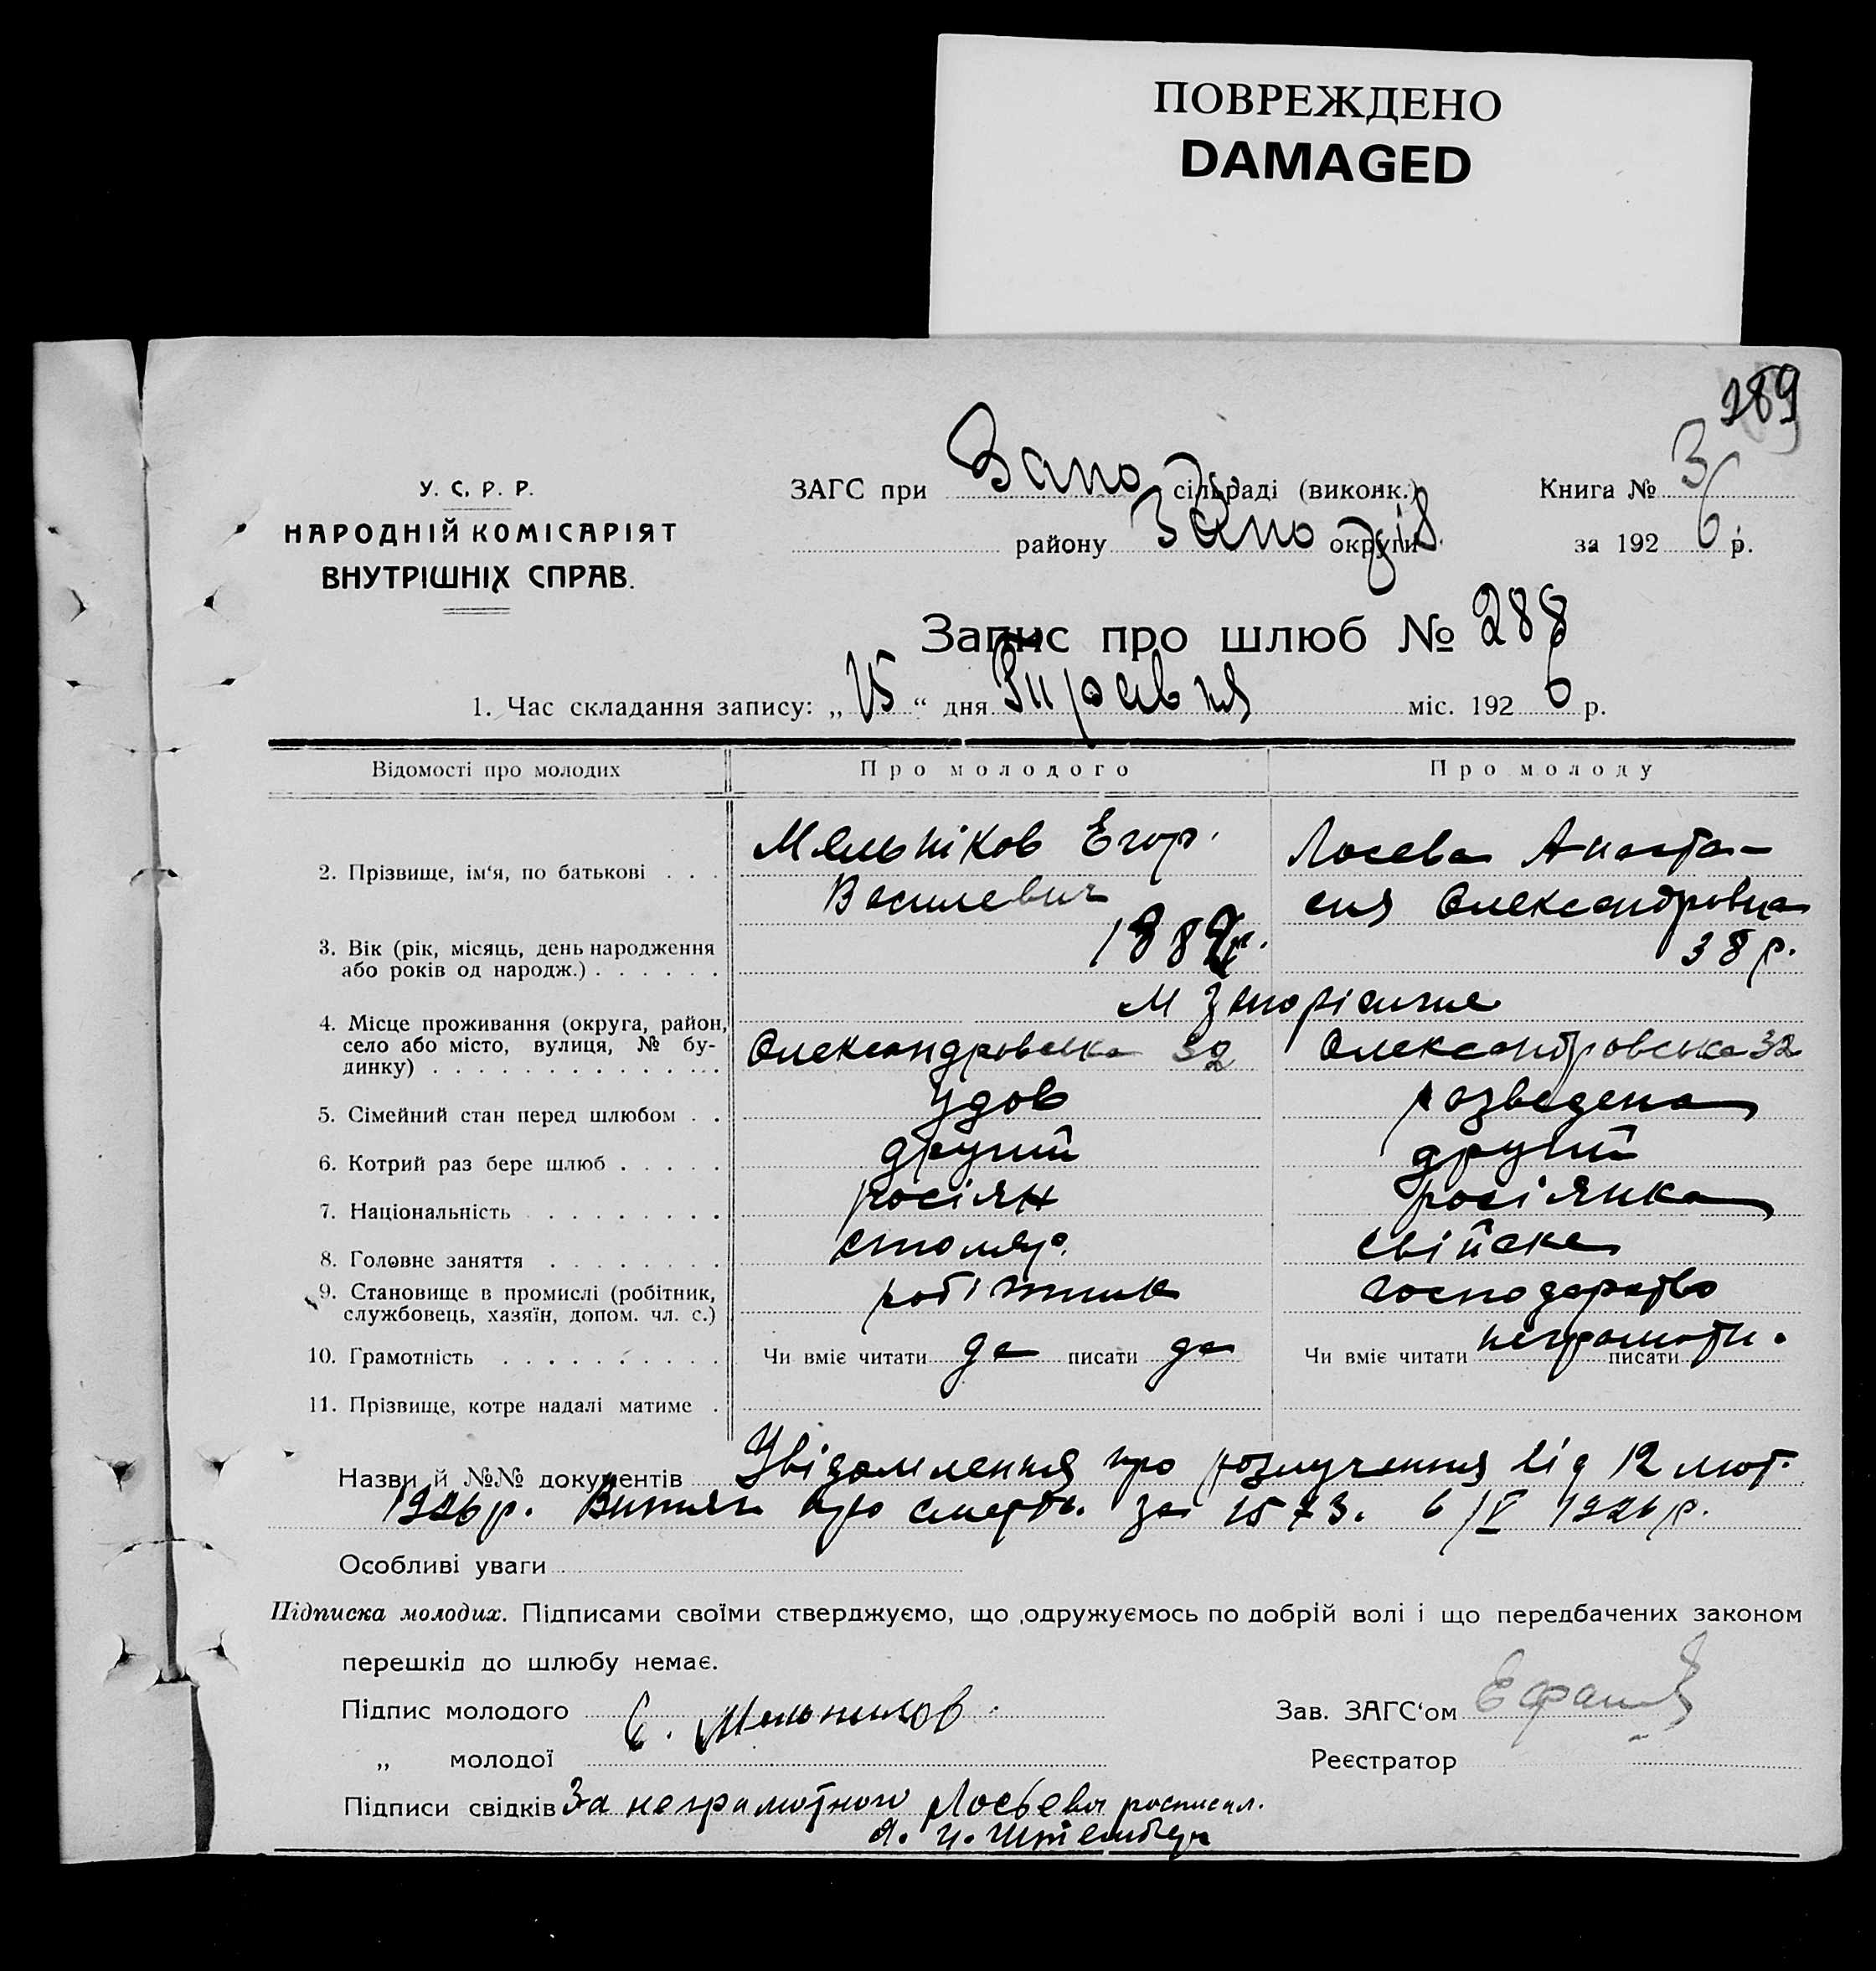 ПОВРЕЖДЕНО
DAMAGED
289
У. С. Р. Р.
НАРОДНІЙ КОМІСАРІЯТ
ВНУТРІШНІХ СПРАВ.
ЗАГС при Запо сільраді (виконк.) Книга № 3
району Запо округи за 192 6 р.
Запис про шлюб № 288
1. Час складання запису: „ 15 “ дня Травня міс. 192 6 р.
Відомості про молодих Про молодого Про молоду
2. Прізвище, ім‘я, по батькові . . . Мельніков Егор Василевич Лосева Анастасия Олександровна
3. Вік (рік, місяць, день народження або років од народж.) . . . . . . 38 р.
4. Місце проживання (округа, район, село або місто, вулиця, № будинку) . . . м Запоріжже
Олександровська 32 Олександровська 32
5. Сімейний стан перед шлюбом . . удов розведена
6. Котрий раз бере шлюб . . . . . другий другий
7. Національність . . . . . . . . . росіян росіянка
8. Головне заняття . . . . . . . . столяр. свійске
9. Становище в промислі (робітник, службовець, хазяїн, допом. чл. с.) робітник господарство
10. Грамотність . . . . . . . . . . Чи вміє читати да писати да Чи вміє читати неграмотн. писати
11. Прізвище, котре надалі матиме .
Назви й №№ документів Увідомлення про розлучення від 12 лют.
1926 р. Витяг про смерть за 1573. 6/V 1926 р.
Особливі уваги
Підписка молодих. Підписами своїми стверджуємо, що одружуємось по добрій волі і що передбачених законом
перешкід до шлюбу немає.
Підпис молодого Е. Мельников Зав. ЗАГС‘ом
„ молодої Реєстратор
Підписи свідків За неграмотного Лосьева росписал.